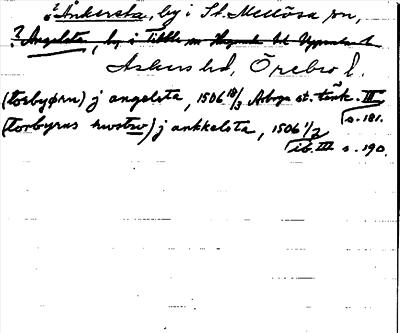 ? Ånkersta, by i St. Mellösa sn,
? Angelsta, by i Tibble sn Håbo hd Uppsala l.
Askers hd, Örebro l.
(torbyørn) j angelsta, 1506 18/3 Arboga st. tänk. III
s. 181.
(torbyrns hwstrv) j ankkelsta, 1506 1/2
ib. III s. 190.